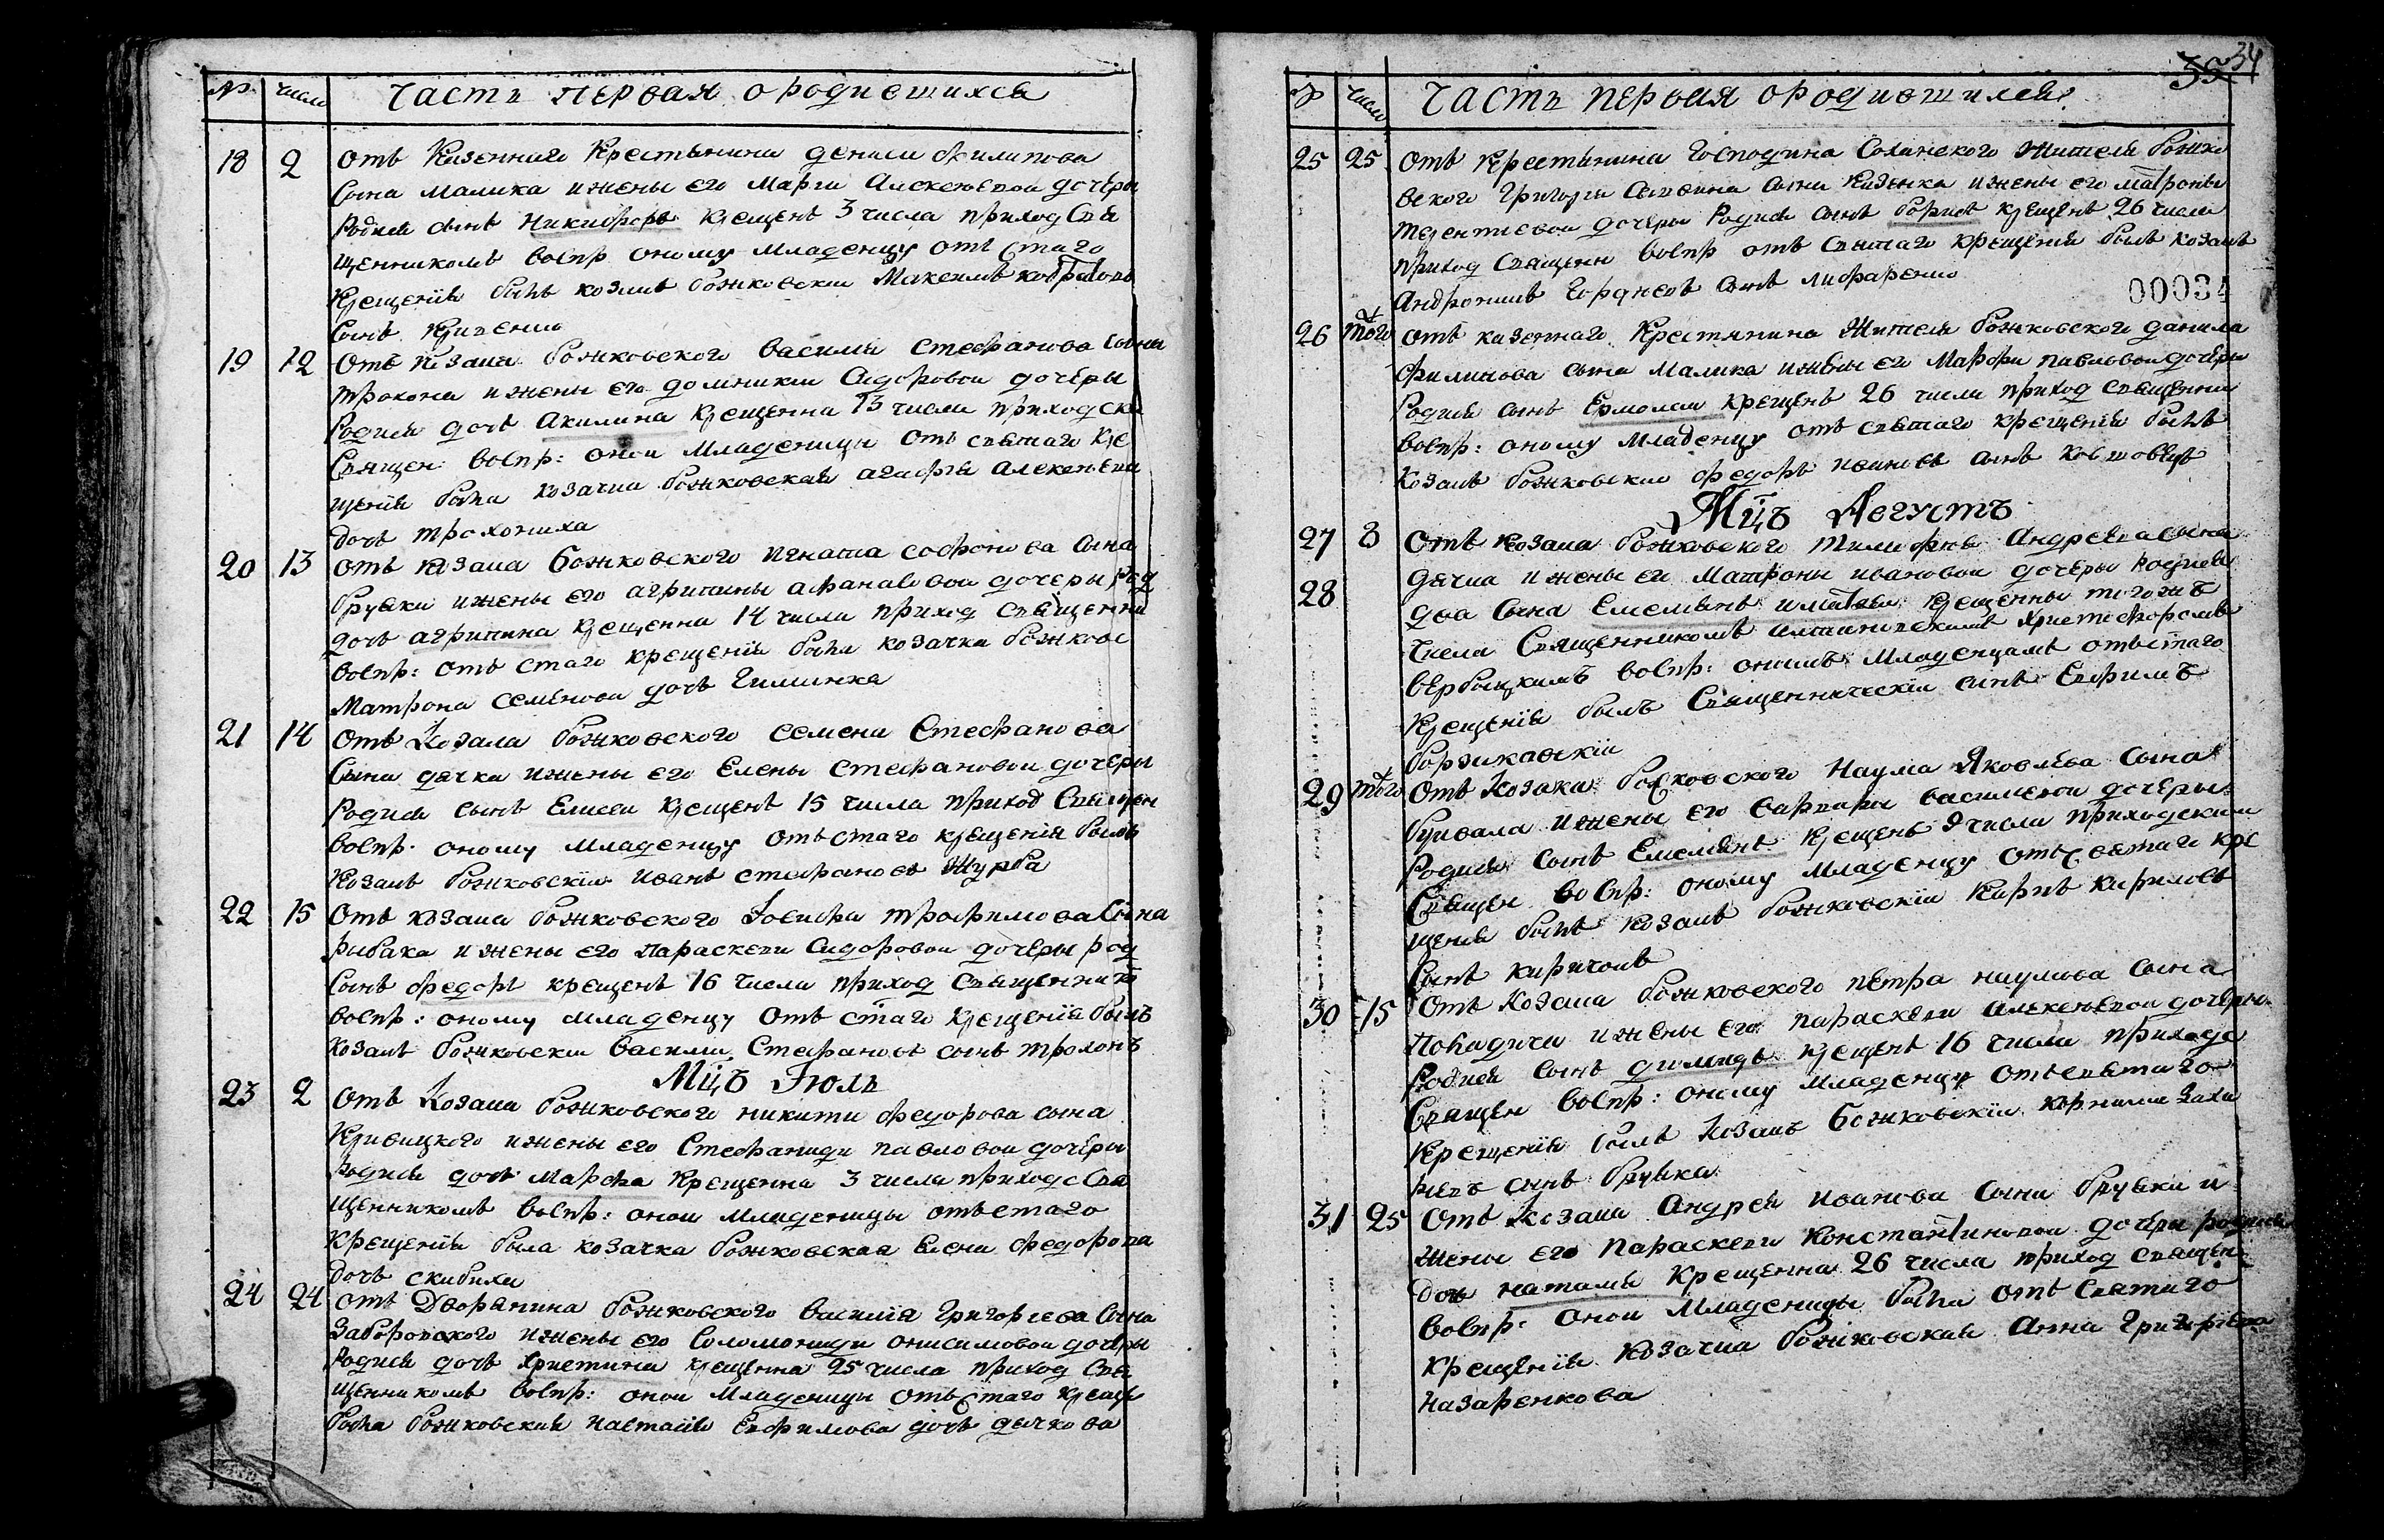 № число Часть первая о родившихся
18 2 отъ Казенного Крестьянина Дениса Филипова
Сына Малика и жены его Марiи Алексеевои дочеры
Родися сынъ Никифоръ крещенъ 3 числа приход Свя
щенникомъ воспр оному младенцу отъ стаго
Крещенiя былъ козакъ божковскiи Максимъ
Сынъ
19 12 Отъ Козака божковского Василiя Стефанова сына
трохона и жены его домникiи Сидоровои дочеры
Родися дочъ Акилина крещенна 13 числа приходски
Священ: воспр: онои младеницы отъ святаго кре
щенiя была козачка божковская агафiя алексеева
дочъ трохониха
20 13 отъ Козака Божковского Игната софонова Сына
бруска и жены его агрипины афанасовои дочеры род
дочъ агрипина крещенна 14 числа приход священни
воспр: отъ стаго крещенiя была козачка божковс
Матрона Семенова дочъ
21 14 отъ Козака божковского Семена Стефанова
Сына дячка и жены его Елены стефановои дочеры
Родися сынъ Елисеи крещенъ 15 числа приход Священ
воспр. оному младенцу отъ стаго крещенiя былъ
Козакъ божковскiи Иванъ стефановъ Журба
22 15 Отъ козака божковского Iосифа трофимова Сына
рыбака и жены его параскеви Сидоровои дочеры род
Сынъ федоръ крещенъ 16 числа приход Священникъ
воспр: оному младенцу отъ стаго крещенiя былъ
козакъ божковскiи Василiи Стефановъ сынъ трохонъ
Мцъ Iюль
23 2 Отъ Козака божковского никити федорова сына
Кривицкого и жены его Стефаниди павловои дочеры
Родися дочъ Марфа Крещенна 3 числа приходс Свя
щенникомъ воспр: онои младеницы отъ стаго
Крещенiя была козачка божковская Елена федорова
дочъ скибиха
24 24 отъ Дворянина божковского Василiя Григорiева Сына
Заборовского и жены его Соломониди онисимовои дочеры
Родися дочъ Христина крещенна 25 числа приход Свя
щенникомъ воспр: онои младеницы отъ стаго крещ
была божковская настасiя Евфимова дочъ дячкова
34
35
число Часть первая о родившихся
25 25 отъ Крестьянина Господина Жителя божко
вского Григорiя сына и жены его матроны
терентиевои дочеры Родися сынъ борисъ крещенъ 26 числа
приход Священн воспр отъ святаго крещенiя былъ козакъ
Андроникъ сынъ
00034
26 того отъ казенного Крестянина Жителя божковского данила
филипова сына малика и жены его Марфы павловои дочеры
Родися сынъ Ермолаи крещенъ 26 числа приход священни
воспр: оному младенцу отъ святаго крещенiя былъ
Козакъ божковскiи федоръ ивановъ сынъ
Мцъ Августъ
27 3 отъ козака божковского Андреева сына
28 дячка и жены его Матроны ивановои дочеры родися
два сына Емелианъ и крещенны тогожъ
числа Священникомъ Христофоромъ
вербицкимъ воспр: онимъ младенцамъ отъ стаго
Крещенiя былъ Священническiи сынъ Евфимъ
боржикавскiи
29 того Отъ Козака божковского Наума Яковлева Сына
и жены его варвары василиевои дочеры
Родися сынъ Емелианъ крещенъ числа приходскiи
Священ воспр: оному младенцу отъ святаго кре
щенiя былъ козакъ божковскiи Карпъ кириловъ
Сынъ киричокъ
30 15 Отъ Козака божковского петра наумова сына
и жены его параскеви алексеевои дочеры
Родися сынъ крещенъ 16 числа приходс
Священ воспр: оному младенцу отъ святаго
Крещенiя былъ Козакъ Божковскiи корнилiи заха
риевъ сынъ бруска
31 25 Отъ Козака Андрея иванова сына бруски и
жены его Параскеви Константиновои дочеры родися
дочъ наталiя крещенна 26 числа приход священ
воспр: онои младеницы была отъ святаго
крещенiя козачка божковская Анна Григориева
назаренкова